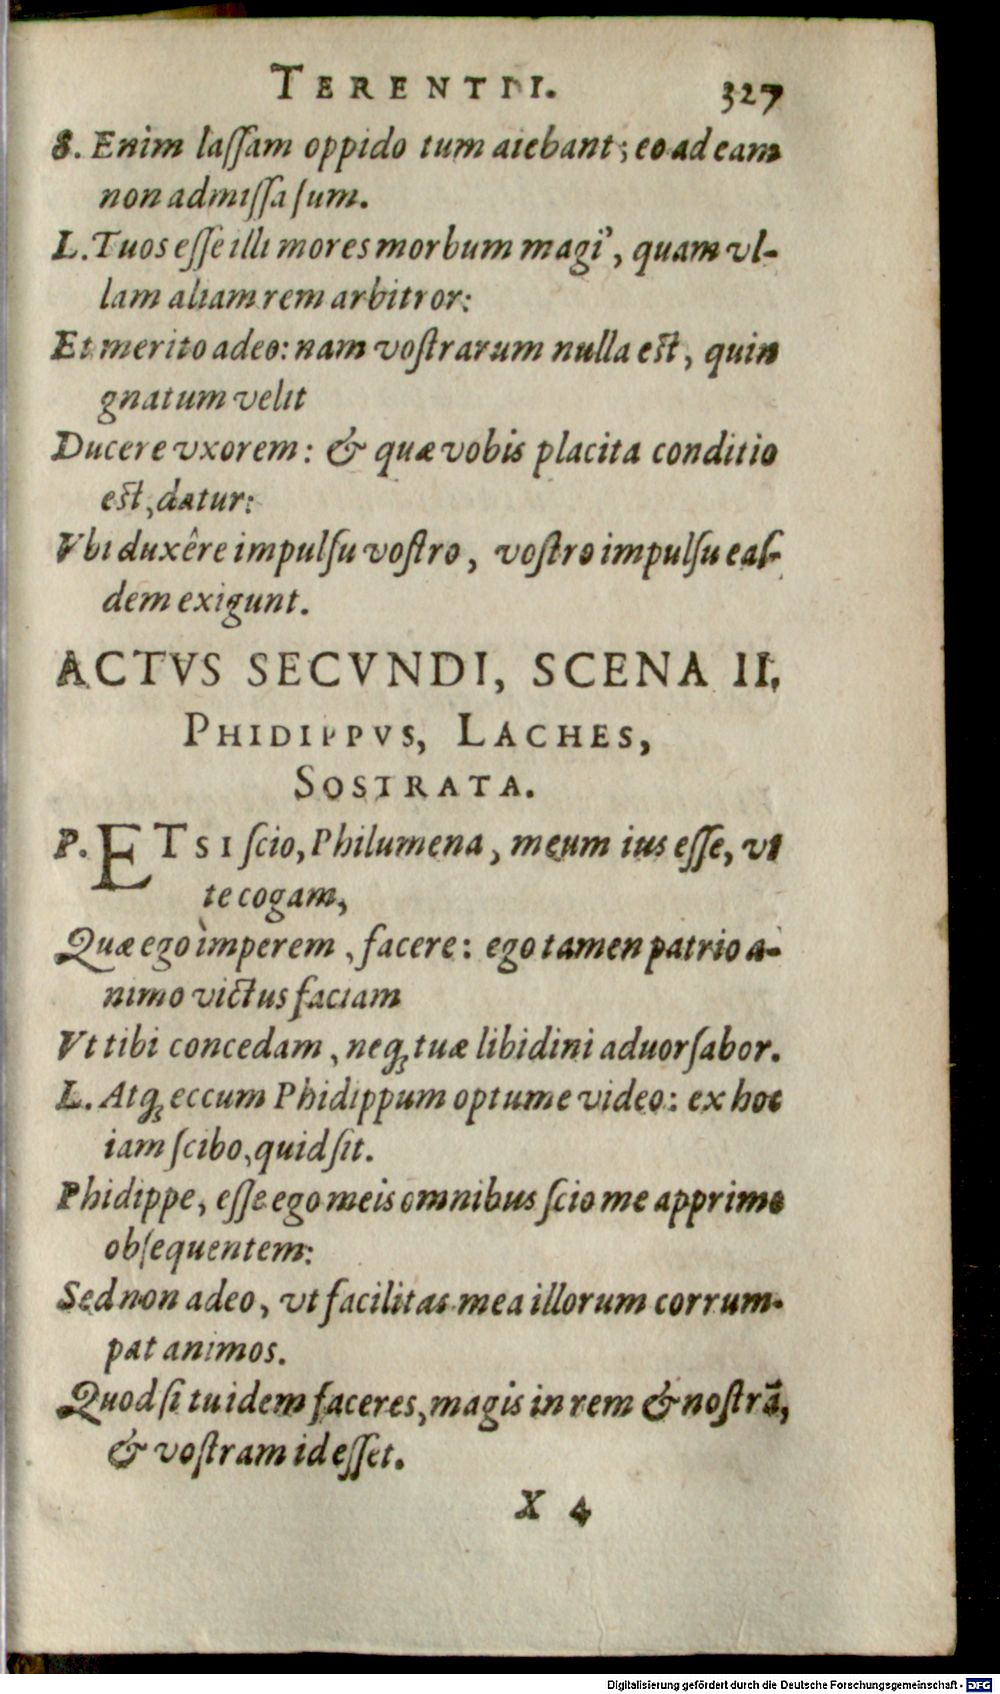 TERENTII. 327
S. Enim laſſam oppido tum aiebant; eo ad eam
non admiſſa ſum.
L. Tuos eſſe illi mores morbum magi', quam vl-
lam aliam rem arbitror:
Et merito adeo: nam voſtrarum nulla eſt, quin
gnatum velit
Ducere vxorem: & quæ vobis placita conditio
eſt, datur:
Vbi duxêre impulſu voſtro, voſtro impulſu eaſ-
dem exigunt.
ACTVS SECVNDI, SCENA II.
PHIDIPPVS, LACHES,
SOSTRATA.
P. ETSI ſcio, Philumena, meum ius eſſe, vt
te cogam,
Quæ ego imperem, facere: ego tamen patrio a-
nimo victus faciam
Vt tibi concedam, neq́; tuæ libidini aduorſabor.
L. Atq́; eccum Phidippum optume video: ex hoc
iam ſcibo, quid ſit.
Phidippe, eſſe ego meis omnibus ſcio me apprime
obſequentem:
Sed non adeo, vt facilitas mea illorum corrum-
pat animos.
Quod ſi tu idem faceres, magis in rem & noſtrā,
& voſtram id eſſet.
X 4
Digitalisierung gefördert durch die Deutsche Forschungsgemeinschaft - DFG